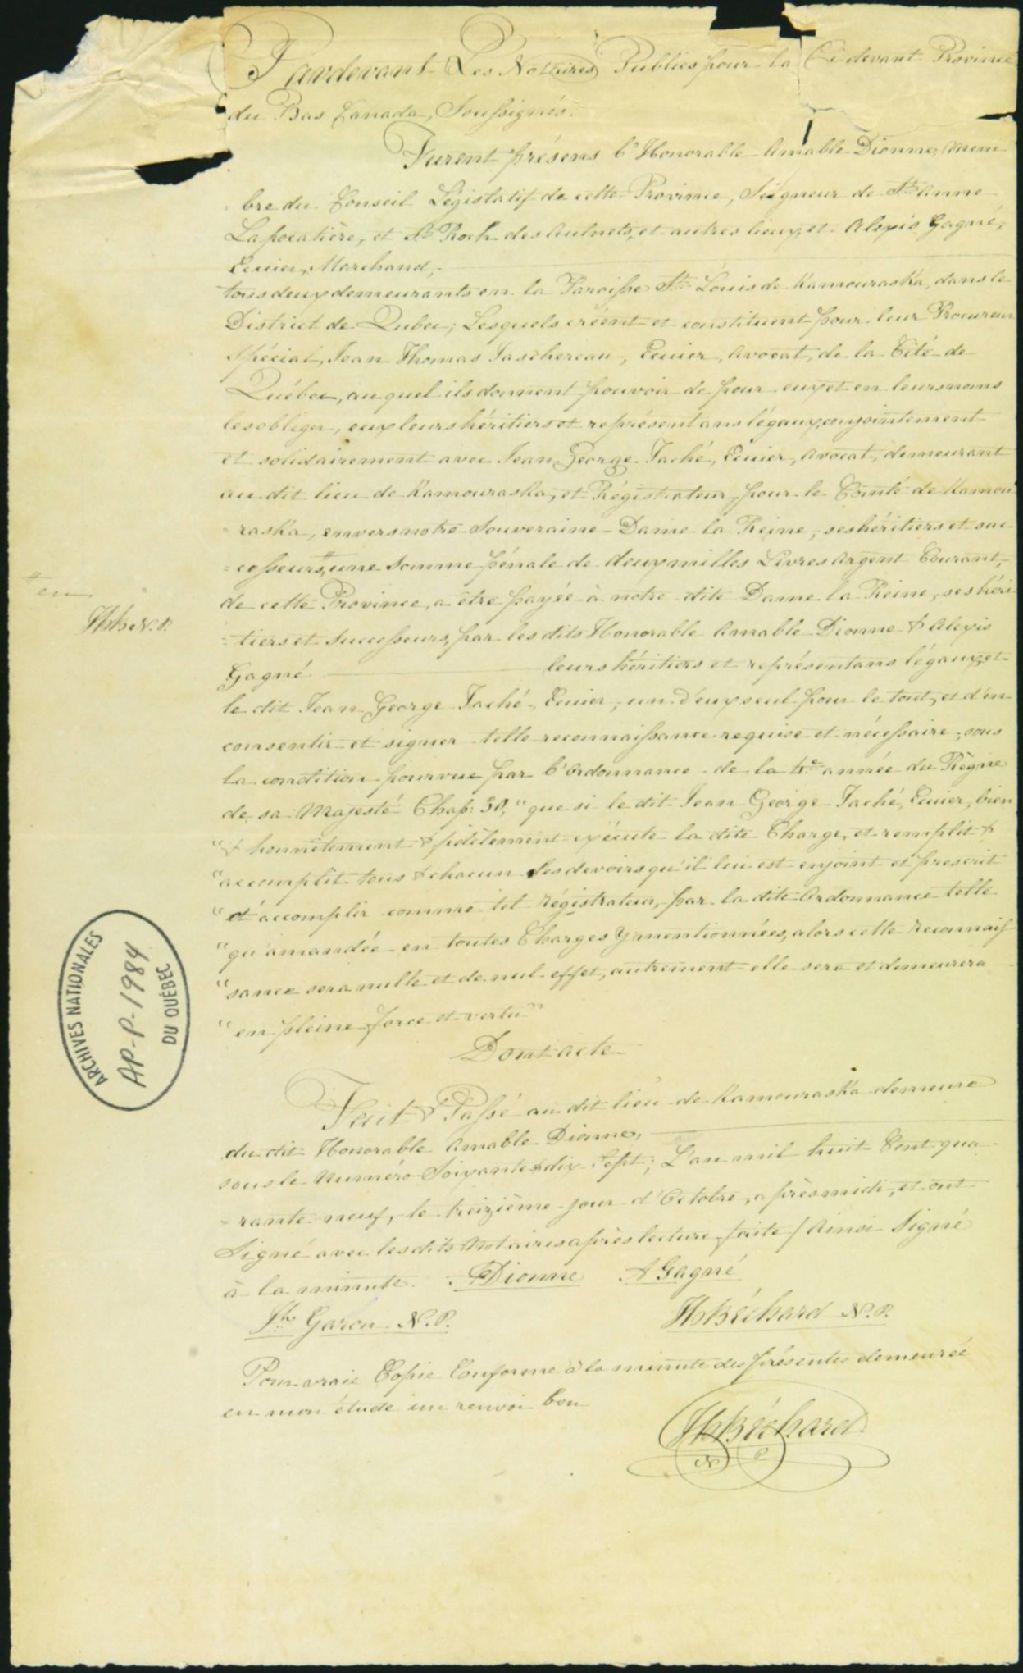 Pardevant Les Notaires Publics pour la Cidevant Province
du Bas Canada, Soussignés.
Furent présens l'Honorable Amable Dionne, Mem
bre du Conseil Législatif de cette Province, Seigneur de Ste Anne
Lapocatière, et St Roch des Aulnets, et autres lieux, et Alexis Gagné,
Ecuier, Marchand,
tous deux demeurants en la Paroisse St Louis de Kamouraska, dans le
District de Québec; Lesquels créent et constituent pour leur Procureur
Spécial, Jean Thomas Taschereau, Ecuier, Avocat, de la Cité de
Québec, auquel ils donnent pouvoir de pour eux et en leurs noms
les obliger, eux leurs héritiers et représentans légaux, conjointement
et solidairement avec Jean George Taché, Ecuier, Avocat, demeurant
au dit lieu de Kamouraska, et Régistrateur pour le Comté de Kamou
raska, envers notre Souveraine Dame la Reine, ses héritiers et suc
cesseurs, # une somme pénale de deux milles Livres Argent Courant,
# en
de cette Province, a être payée à notre dite Dame la Reine, ses héri
tiers et successeurs, par les dits Honorable Amable Dionne & Alexis
Gagné leurs héritiers et représentans légaux, et
le dit Jean George Taché, Ecuier, un d'eux seul pour le tout, et d'en
consentir et signer telle reconnaissance requise et nécessaire, sous
la condition pourvue par l'Ordonnance de la 4e année du Règne
de sa Majesté Chap: 30, "que si le dit Jean George Taché, Ecuier, bien
"& honnêtement & fidèlement exécute la dite Charge, et remplit &
"accomplit tous & chacun les devoirs qu'il lui est enjoint et prescrit
"d'accomplir comme tel Régistrateur, par la dite Ordonnance telle
"qu'amandée en toutes Charges y mentionnées, alors cette Reconnais
"sance sera nulle et de nul effet, autrement elle sera et demeurera
"en pleine force et vertu"
Dont acte
Fait & Passé au dit lieu de Kamouraska demeure
du dit Honorable Amable Dionne,
sous le Numéro Soixante & dix Sept; L'an mil huit Cent qua
rante neuf, le treizième jour d'Octobre, après midi, et ont
Signé avec les dits Notaires après lecture faite / Ainsi Signé
à la minute. ADionne AGagné
Jh Garon N.P. JBéchard N.P.
Pour vraie Copie Conforme à la minute des présentes demeurée
en mon étude un renvoi bon
Béchard
N P
ARCHIVES NATIONALES
AP-P-1984
DU QUÉBEC